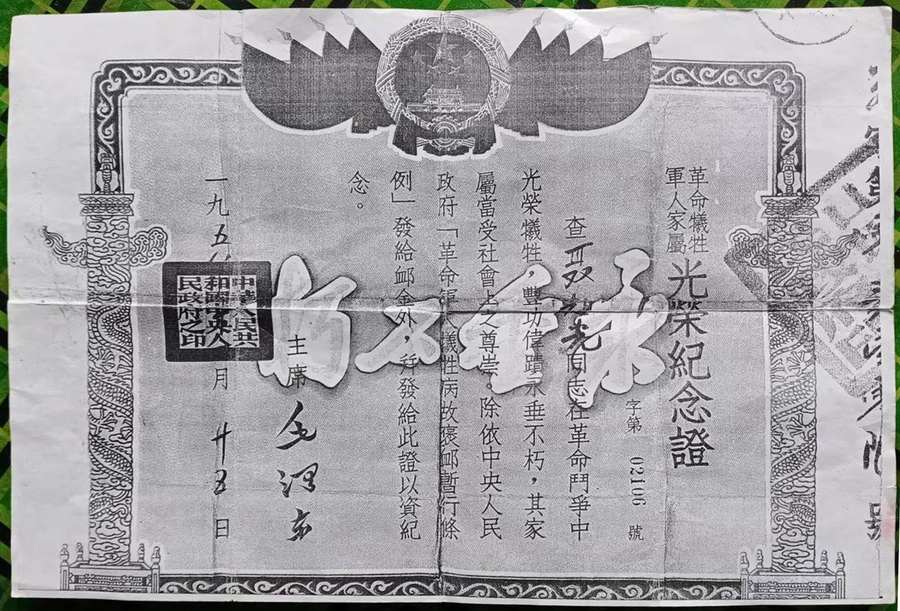 革命犧牲
軍人家屬
光榮紀念證
字第 02106 號
查 光同志在革命鬥爭中
光榮犧牲，豐功偉蹟永垂不朽，其家
屬當受社會上之尊崇。除依中央人民
政府「革命軍人犧牲病故褒卹暫行條
例」發給卹金外，并發給此證以資紀
念。
永垂不朽
主席 毛澤东
一九五 月 廿五日
中華人民共
和國中央人
民政府之印